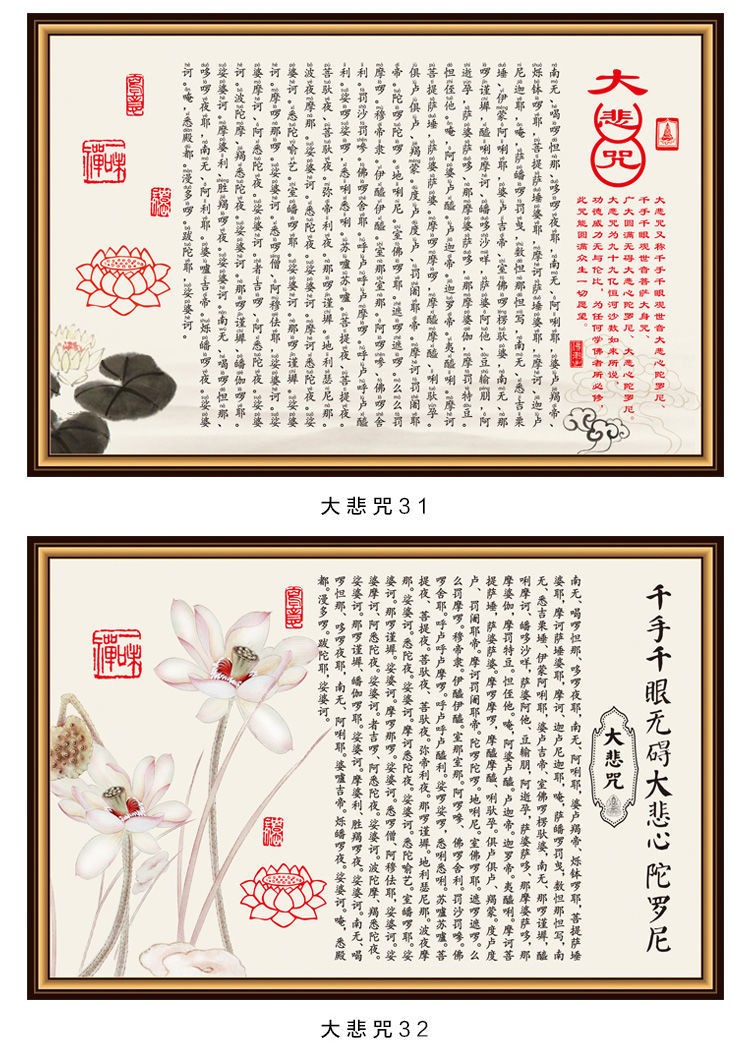 大悲咒
大悲咒又称千手千眼观世音大悲心陀罗尼、
千手千眼观世音菩萨大身咒、
广大圆满无碍大悲心陀罗尼、大悲心陀罗尼。
大悲咒为九十九亿恒河沙数如来所说，
功德威力无与伦比，为任何学佛者所必修，
此咒能圆满众生一切愿望。
南无、喝啰怛那、哆啰夜耶、南无、阿唎耶、婆卢羯帝、
烁钵啰耶、菩提萨埵婆耶、摩诃萨埵婆耶、摩诃、迦卢
尼迦耶、唵，萨皤啰罚曳，数怛那怛写，南无、悉吉栗
埵、伊蒙阿唎耶，婆卢吉帝、室佛啰楞驮婆，南无、那
啰谨墀，醯唎摩诃、皤哆沙咩，萨婆阿他、豆输朋，阿
逝孕，萨婆萨哆、那摩婆萨哆，那摩婆伽，摩罚特豆。
怛侄他。唵，阿婆卢醯。卢迦帝。迦罗帝。夷醯唎。摩诃
菩提萨埵，萨婆萨婆。摩啰摩啰，摩醯摩醯、唎驮孕。
俱卢俱卢、羯蒙。度卢度卢、罚阇耶帝。摩诃罚阇耶
帝。陀啰陀啰。地唎尼。室佛啰耶。遮啰遮啰。么么罚
摩啰。穆帝隶。伊醯伊醯。室那室那。阿啰嘇、佛啰舍
利。罚沙罚嘇。佛啰舍耶。呼卢呼卢摩啰。呼卢呼卢醯
利。娑啰娑啰，悉唎悉唎。苏嚧苏嚧。菩提夜、菩提夜。
菩驮夜、菩驮夜。弥帝利夜。那啰谨墀。地利瑟尼那。
波夜摩那。娑婆诃。悉陀夜。娑婆诃。摩诃悉陀夜。娑
婆诃。悉陀喻艺。室皤啰耶。娑婆诃。那啰谨墀。娑婆
诃。摩啰那啰。娑婆诃。悉啰僧、阿穆佉耶，娑婆诃。娑
婆摩诃、阿悉陀夜。娑婆诃。者吉啰、阿悉陀夜。娑婆
诃。波陀摩、羯悉陀夜。娑婆诃。那啰谨墀、皤伽啰耶。
娑婆诃。摩婆利、胜羯啰夜。娑婆诃。南无、喝啰怛那、
哆啰夜耶，南无、阿利耶。婆嚧吉帝。烁皤啰夜。娑婆
诃。唵，悉殿都。漫多啰。跋陀耶，娑婆诃。
一味禅
大悲咒31
千手千眼无碍大悲心陀罗尼
大悲咒
南无、喝啰怛那、哆啰夜耶，南无、阿唎耶，婆卢羯帝、烁钵啰耶，菩提萨埵
婆耶，摩诃萨埵婆耶，摩诃、迦卢尼迦耶，唵，萨皤啰罚曳，数怛那怛写，南
无、悉吉栗埵、伊蒙阿唎耶，婆卢吉帝、室佛啰楞驮婆，南无、那啰谨墀，醯
唎摩诃、皤哆沙咩，萨婆阿他、豆输朋，阿逝孕，萨婆萨哆、那摩婆萨哆，那
摩婆伽，摩罚特豆。怛侄他。唵，阿婆卢醯。卢迦帝。迦罗帝。夷醯唎。摩诃菩
提萨埵，萨婆萨婆。摩啰摩啰，摩醯摩醯、唎驮孕。俱卢俱卢、羯蒙。度卢度
卢、罚阇耶帝。摩诃罚阇耶帝。陀啰陀啰。地唎尼。室佛啰耶。遮啰遮啰。么
么罚摩啰。穆帝隶。伊醯伊醯。室那室那。阿啰嘇、佛啰舍利。罚沙罚嘇。佛
啰舍耶。呼卢呼卢摩啰。呼卢呼卢醯利。娑啰娑啰，悉唎悉唎。苏嚧苏嚧。菩
提夜、菩提夜。菩驮夜、菩驮夜。弥帝利夜。那啰谨墀。地利瑟尼那。波夜摩
那。娑婆诃。悉陀夜。娑婆诃。摩诃悉陀夜。娑婆诃。悉陀喻艺。室皤啰耶。娑
婆诃。那啰谨墀。娑婆诃。摩啰那啰。娑婆诃。悉啰僧、阿穆佉耶，娑婆诃。娑
婆摩诃、阿悉陀夜。娑婆诃。者吉啰、阿悉陀夜。娑婆诃。波陀摩、羯悉陀夜。
娑婆诃。那啰谨墀、皤伽啰耶。娑婆诃。摩婆利、胜羯啰夜。娑婆诃。南无、喝
啰怛那、哆啰夜耶，南无、阿唎耶。婆嚧吉帝。烁皤啰夜。娑婆诃。唵，悉殿
都。漫多啰。跋陀耶，娑婆诃。
一味禅
大悲咒32